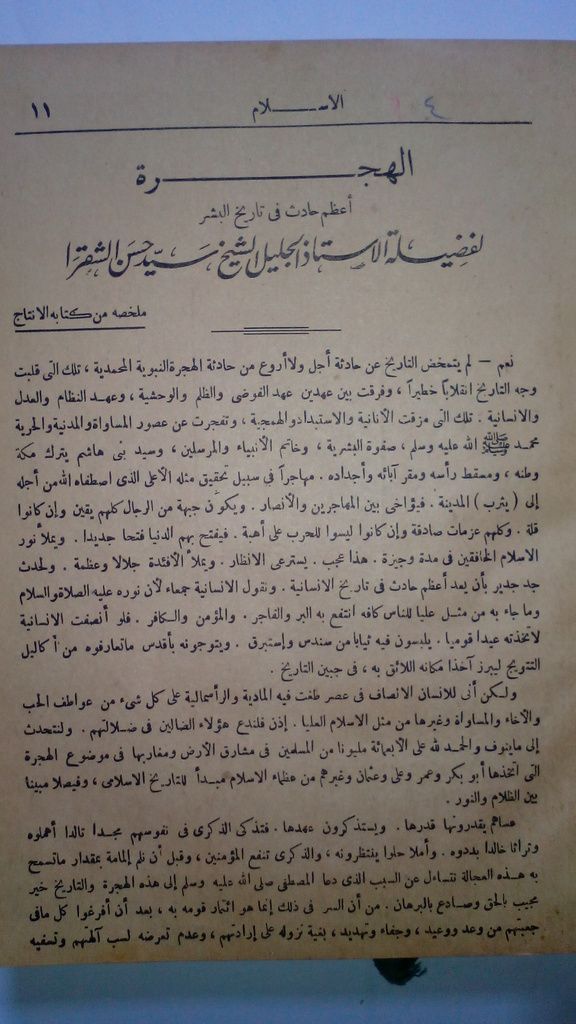 ١١ الاسـلام ٤
الهجـرة
أعظم حادث فى تاريخ البشر
لفضيلة الاستاذ الجليل الشيخ سيد حسن الشقرا
ملخصه من كتابه الانتاج
نعم — لم يتمخض التاريخ عن حادثة أجل ولا أروع من حادثة الهجرة النبوية المحمدية ، تلك التى قلبت
وجه التاريخ انقلاباً خطيراً ، وفرقت بين عهدين عهد الفوضى والظلم والوحشية ، وعهد النظام والعدل
والانسانية . تلك التى مزقت الأنانية والاستبداد والهمجية ، وتفجرت عن عصور المساواة والمدنية والحرية
محمد ﷺ الله عليه وسلم ، صفوة البشرية ، وخاتم الأنبياء والمرسلين ، وسيد بنى هاشم يترك مكة
وطنه ، ومسقط رأسه ومقر آبائه وأجداده . مهاجراً فى سبيل تحقيق مثله الأعلى الذى اصطفاه الله من أجله
إلى ( يثرب ) المدينة . فيؤاخى بين المهاجرين والأنصار . ويكوّن جبهة من الرجال كلهم يقين وإن كانوا
قلة . وكلهم عزمات صادقة وإن كانوا ليسوا للحرب على أهبة . فيفتح بهم الدنيا فتحا جديدا . ويملأ نور
الاسلام الخافقين فى مدة وجيزة . هذا عجب . يسترعى الانظار . ويملأ الأفئدة جلالا وعظمة . ولحدث
جد جدير بأن يعد أعظم حادث فى تاريخ الانسانية . ونقول الانسانية جمعاء لأن نوره عليه الصلاة والسلام
وما جاء به من مثل عليا للناس كافه انتفع به البر والفاجر . والمؤمن والكافر . فلو أنصفت الانسانية
لاتخذته عيدا قوميا . يلبسون فيه ثيابا من سندس وإستبرق . ويتوجونه بأقدس ماتعارفوه من أكاليل
التتويج ليبرز آخذا مكانه اللائق به ، فى جبين التاريخ .
ولكن أنى للانسان الانصاف فى عصر طغت فيه المادية والرأسمالية على كل شىء من عواطف الحب
والآخاء والمساواة وغيرها من مثل الاسلام العليا . إذن فلندع هؤلاء الضالين فى ضلالتهم . ولنتحدث
إلى ماينوف والحمد لله على الأربعمائة مليونا من المسلمين فى مشارق الأرض ومغاربها فى موضوع الهجرة
التى اتخذها أبو بكر وعمر وعلى وعثمان وغيرهم من عظماء الاسلام مبدأ للتاريخ الاسلامى ، وفيصلا مبينا
بين الظلام والنور .
عساهم يقدرونها قدرها . ويستذكرون عهدها . فتذكى الذكرى فى نفوسهم مجدا تالدا أهملوه
وتراثا خالدا بددوه . وأملا حلوا ينتظرونه ، والذكرى تنفع المؤمنين ، وقبل أن نلم إلمامة بمقدار ماتسمح
به هذه العجالة نتساءل عن السبب الذى دعا المصطفى صلى الله عليه وسلم إلى هذه الهجرة والتاريخ خير
مجيب بالحق وصادع بالبرهان . من أن السر فى ذلك إنما هو ائتمار قومه به ، بعد أن أفرغوا كل مافى
جعبتهم من وعد ووعيد ، وجفاء وتهديد ، بغية نزوله على إرادتهم ، وعدم تعرضه لسب آلهتهم وتسفيه